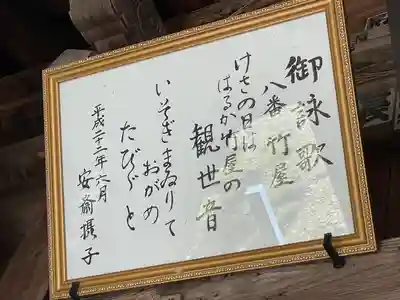 御詠歌
八番竹屋
けさの日は
はるか竹屋の
観世音
いそぎまゐりて
おがめ
たびゞと
平成二十二年六月
安斎揖子